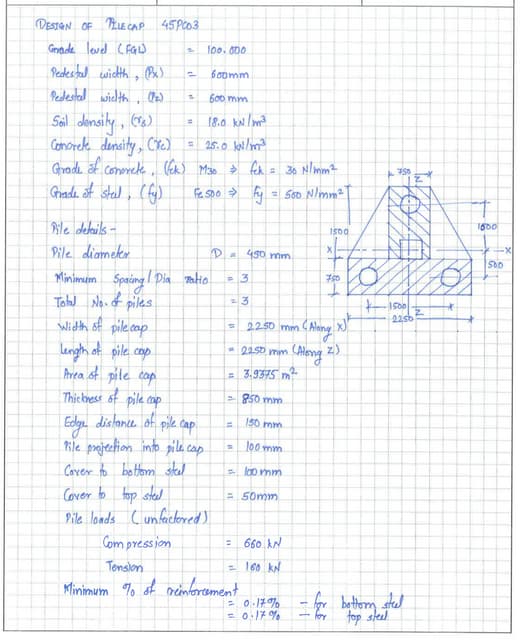 DESIGN OF PILE CAP 45PC03
Grade level (FGL) = 100.000
Pedestal width, (Px) = 600mm
Pedestal width, (Pz) = 600 mm
Soil density, (γs) = 18.0 kN/m³
Concrete density, (γc) = 25.0 kN/m³
Grade of concrete, (fck) M30 ⇒ fck = 30 N/mm²
Grade of steel, (fy) Fe 500 ⇒ fy = 500 N/mm²
750
Z
1500
1000
X
X
500
750
1500
Z
2250
Pile details -
Pile diameter D = 450 mm
Minimum Spacing / Dia ratio = 3
Total No. of piles = 3
Width of pile cap = 2250 mm (Along X)
Length of pile cap = 2250 mm (Along Z)
Area of pile cap = 3.9375 m²
Thickness of pile cap = 850 mm
Edge distance of pile cap = 150 mm
Pile projection into pile cap = 100mm
Cover to bottom steel = 100 mm
Cover to top steel = 50mm
Pile loads (unfactored)
Compression = 660 kN
Tension = 160 kN
Minimum % of reinforcement
= 0.17% - for bottom steel
= 0.17% - for top steel